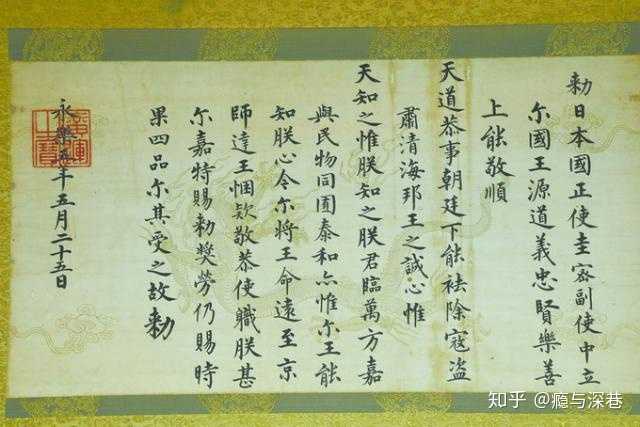 勑日本國正使圭密副使中立
尓國王源道義忠賢樂善
上能敬順
天道恭事朝廷下能祛除寇盜
肅清海邦王之誠心惟
天知之惟朕知之朕君臨萬方嘉
與民物同囿泰和亦惟尓王能
知朕心今尓將王命遠至京
師達王悃欵敬恭使職朕甚
尓嘉特賜勑獎勞仍賜時
果四品尓其受之故勑
永樂五年五月二十五日
廣運之寶
知乎 @瘾与深巷